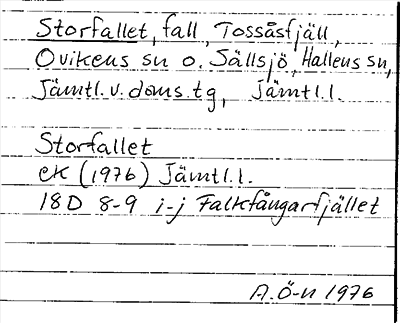 Storfallet, fall, Tossåsfjäll,
Ovikens sn o. Sällsjö, Hallens sn,
Jämtl. v. doms. tg, Jämtl. l.
Storfallet
ek (1976) Jämtl. l.
18D 8-9 i-j Falkfångarfjället
A. Ö-n 1976